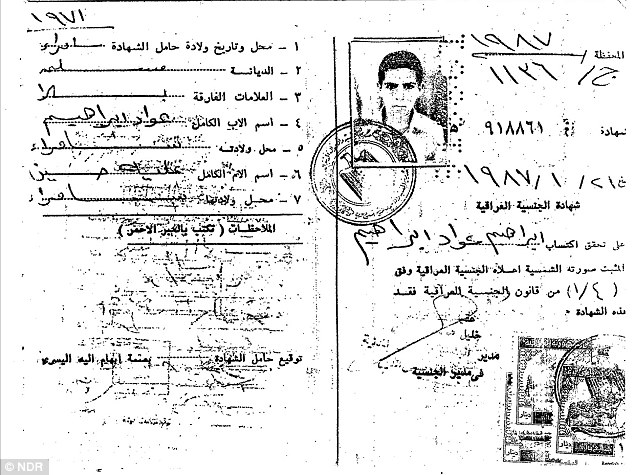 المحفظة ١٩٨٧
ج / ١١٣٦
شهادة ٩١٨٨٦١
٢١ / ١ / ١٩٨٧
شهادة الجنسية العراقية
على تحقق اكتساب ابراهيم عواد ابراهيم
المثبت صورته الشمسية اعلاه الجنسية العراقية وفق
( ١/٤ ) من قانون الجنسية العراقية فقد
هذه الشهادة
خليل
مدير
١٩٧١
١ - محل وتاريخ ولادة حامل الشهادة سامراء
٢ - الديانة مسلم
٣ - العلامات الفارقة بلا
٤ - اسم الاب الكامل عواد ابراهيم
٥ - محل ولادته سامراء
٦ - اسم الام الكامل
٧ - محل ولادتها سامراء
الملاحظات ( تكتب بالحبر الاحمر )
توقيع حامل الشهادة بصمة ابهام اليد اليسرى
© NDR